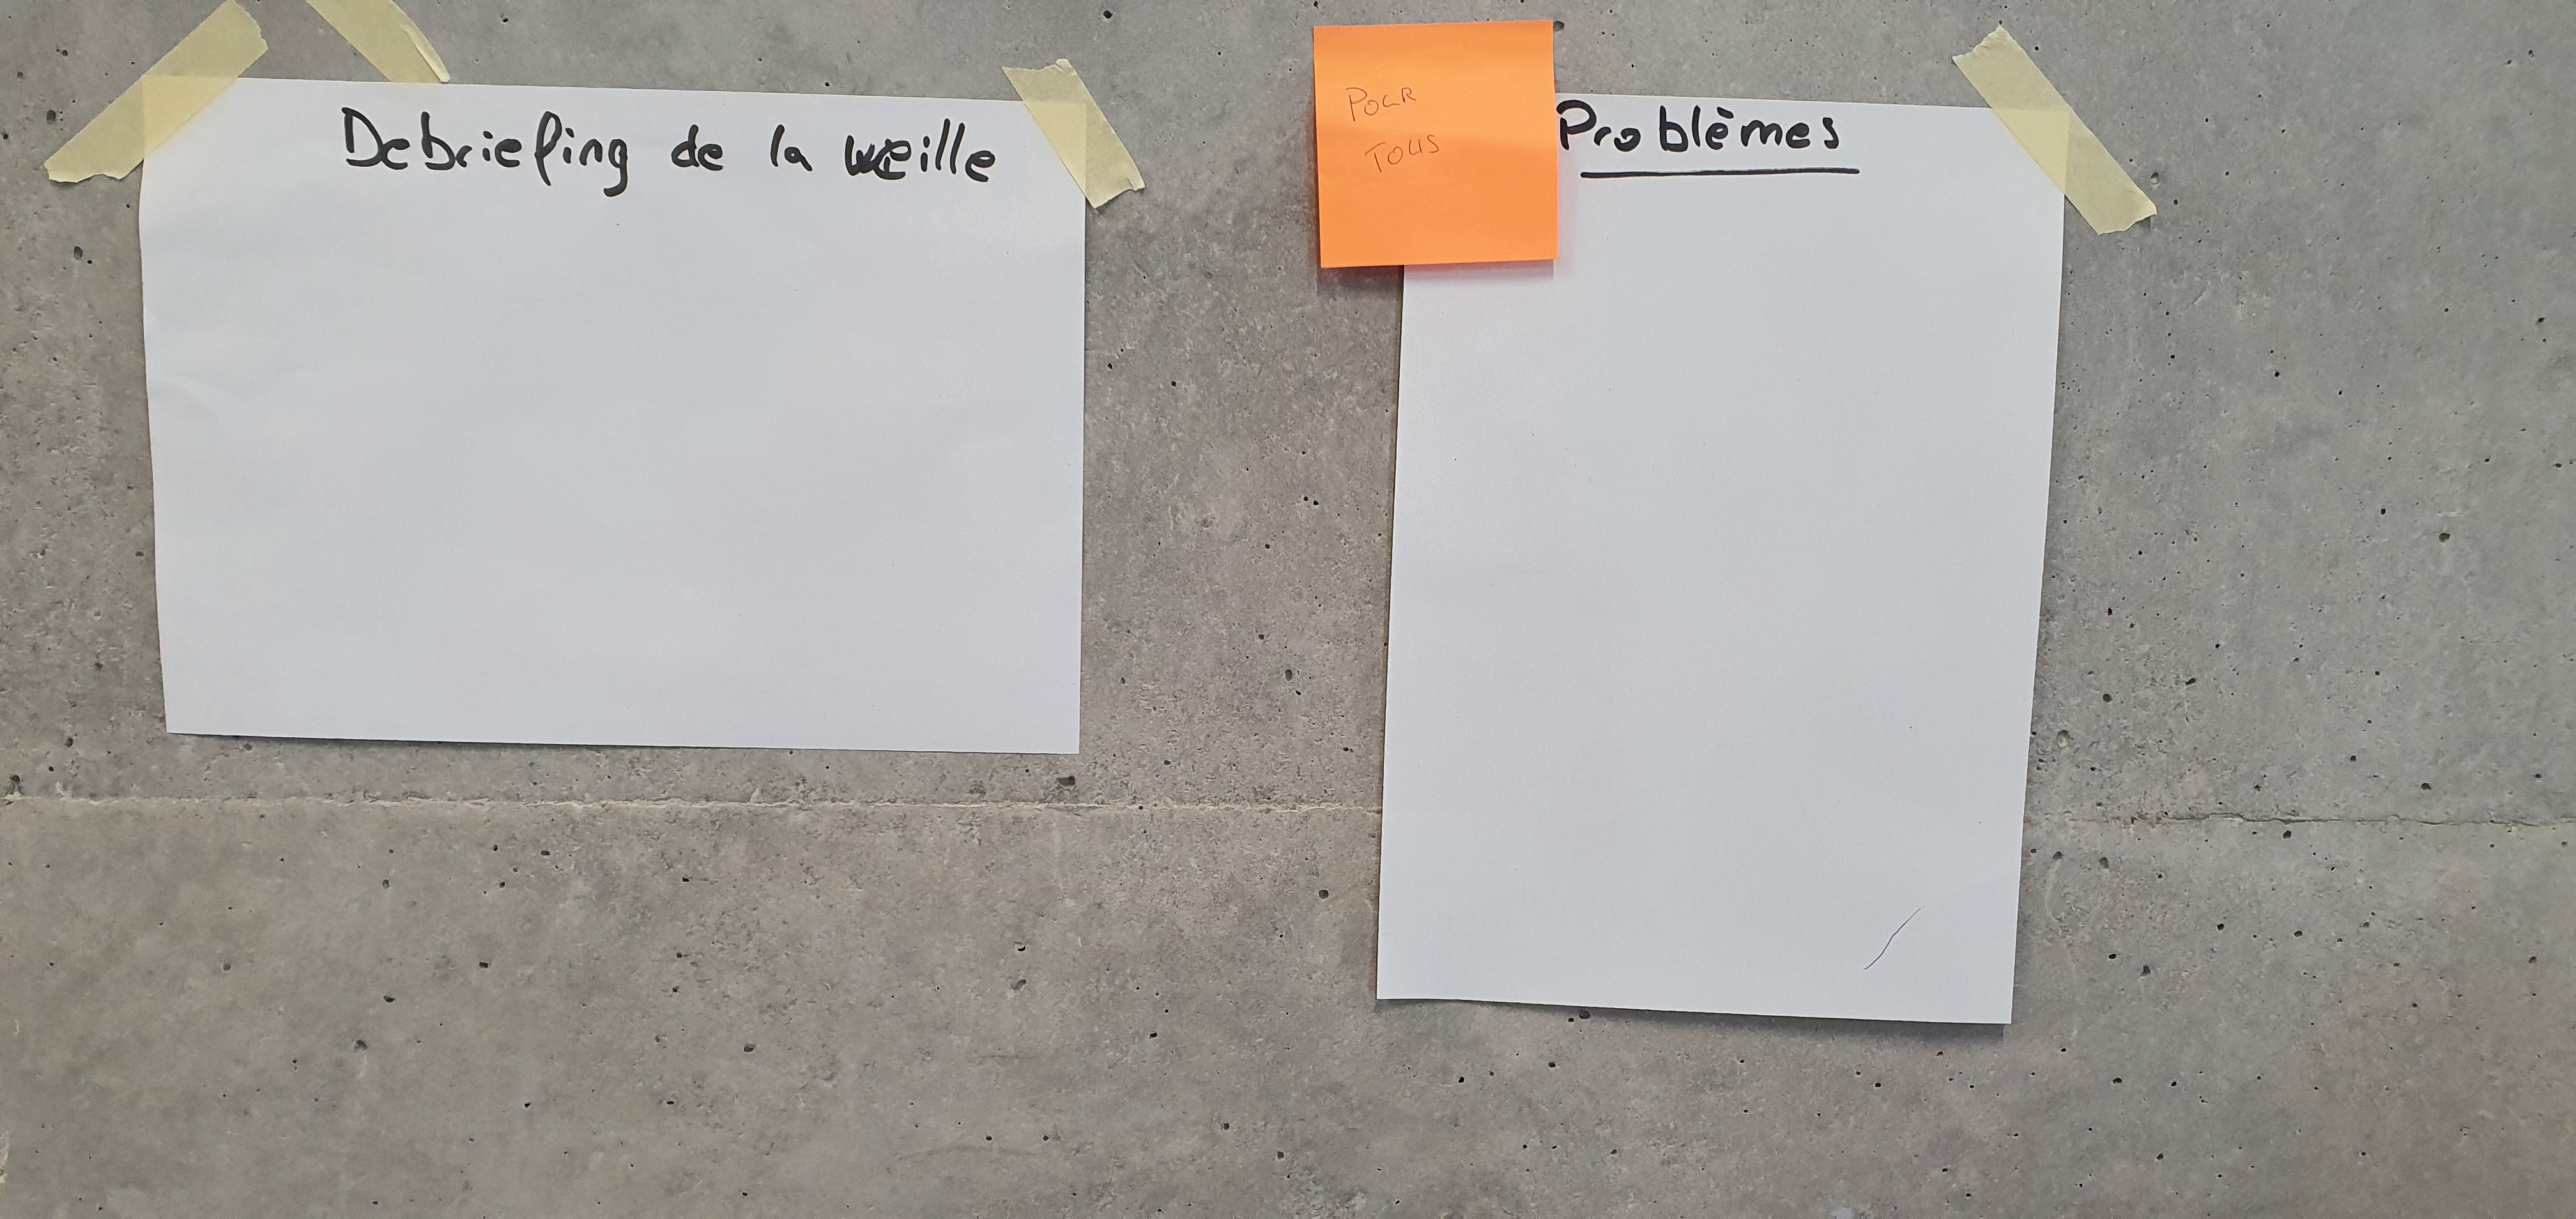 Debriefing de la veille
POUR
TOUS
Problèmes